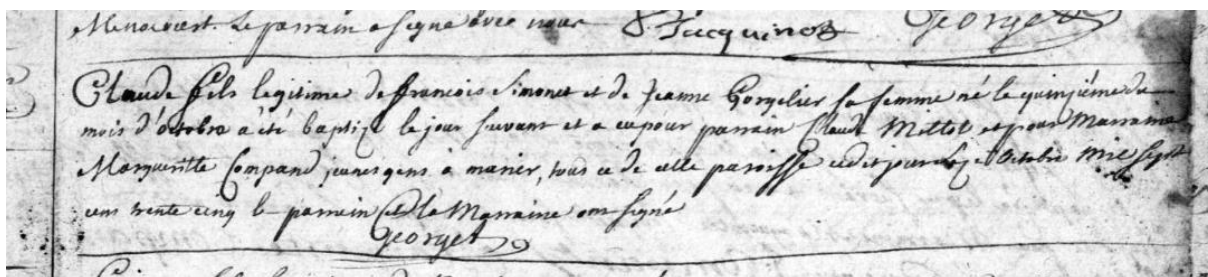 Le parrain a signé avec nous Jacquinot Georget
Claude fils legitime de francois Simonet et de Jeanne Gorgelier sa femme né le quinziéme du
mois d'octobre a été baptizé le jour suivant et a eu pour parrain Claude Millot et pour Marraine
Margueritte Compand jeunes gens a marier, tous de cette paroisse cedit jour octobre mil sept
cens trente cinq le parrain et la Marraine ont signé
Georget